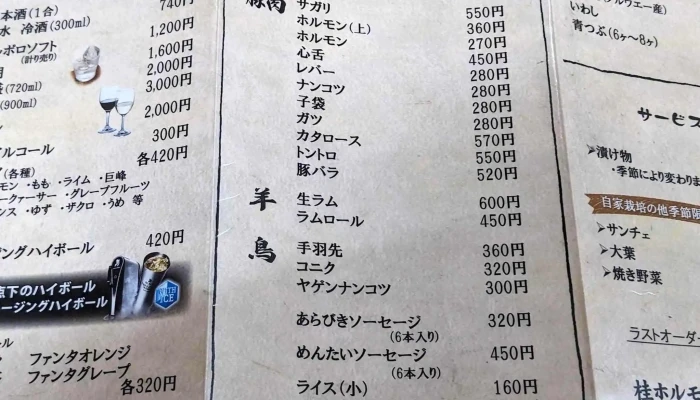 740円
本酒(1合)
水 冷酒(300ml)
1,200円
ポロソフト
(計り売り)
1,600円
2,000円
(720ml)
3,000円
(900ml)
2,000円
300円
アルコール
各420円
(各種)
モン ・もも ・ライム ・巨峰
ークァーサー ・グレープフルーツ
ンス ・ゆず ・ザクロ ・うめ 等
ジングハイボール
420円
点下のハイボール
ージングハイボール
ICE
ール
ファンタオレンジ
ファンタグレープ
各320円
豚肉
サガリ 550円
ホルモン(上) 360円
ホルモン 270円
心舌 450円
レバー 280円
ナンコツ 280円
子袋 280円
ガツ 280円
カタロース 570円
トントロ 550円
豚バラ 520円
羊
生ラム 600円
ラムロール 450円
鳥
手羽先 360円
コニク 320円
ヤゲンナンコツ 300円
あらびきソーセージ 320円
(6本入り)
めんたいソーセージ 450円
(6本入り)
ライス(小) 160円
ルウェー産)
いわし
青つぶ(6ヶ〜8ヶ)
サービス
漬け物
・季節により変わりま
自家栽培の他季節限
サンチェ
大葉
焼き野菜
ラストオーダー
桂ホルモ